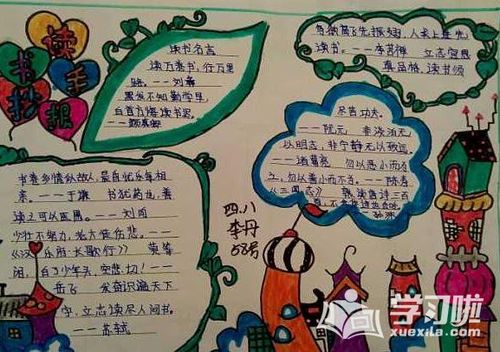 读书手抄报
读书名言
读万卷书，行万里
路。——刘彝
黑发不知勤学早，
白首方悔读书迟。
——颜真卿
鸟欲高飞先振翅，人求上进先
读书。——李苦禅 立志宜思
真品格，读书须
尽苦功夫。
——阮元 非淡泊无
以明志，非宁静无以致远。
——诸葛亮 勿以恶小而为
之，勿以善小而不为。——陈寿
《三国志》
书卷多情似故人，晨昏忧乐每相
亲。——于谦 书犹药也，善
读之可以医愚。——刘向
少壮不努力，老大徒伤悲。——
《汉乐府·长歌行》 莫等
闲，白了少年头，空悲切！——
岳飞 发奋识遍天下
字，立志读尽人间书。
——苏轼
四.八
李丹
58号
学习啦
xuexila.com